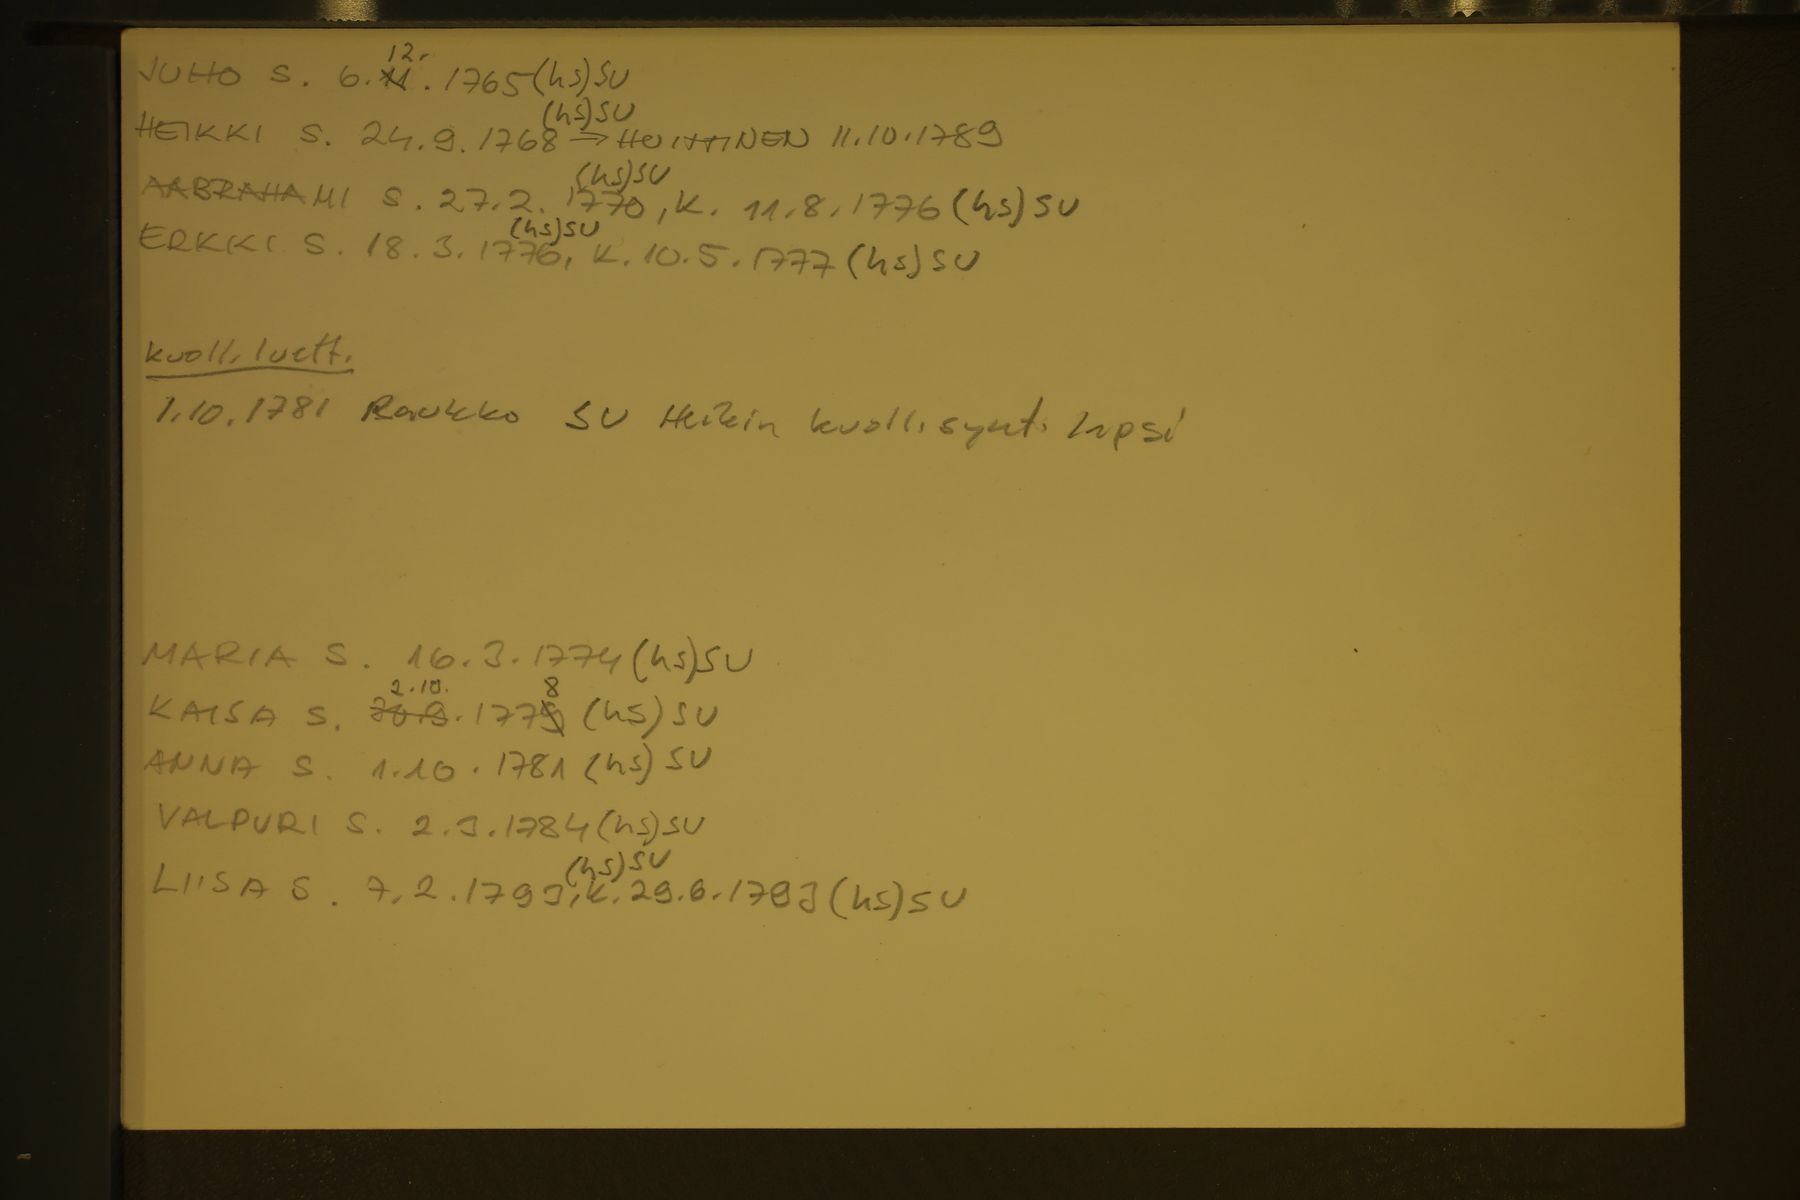 12.
JUHO S. 6.11.1765 (hs) SU
(hs) SU
HEIKKI S. 24.9.1768 → HUITTINEN 11.10.1789
(hs) SU
AABRAHAMI S. 27.2.1770, K. 11.8.1776 (hs) SU
(hs) SU
ERKKI S. 18.3.1776, K. 10.5.1777 (hs) SU
kuoll. luett.
1.10.1781 Raukko SU Heikin kuoll. synt. lapsi
MARIA S. 16.3.1774 (hs) SU
2.10. 8
KAISA S. 30.9.1779 (hs) SU
ANNA S. 1.10.1781 (hs) SU
VALPURI S. 2.3.1784 (hs) SU
(hs) SU
LIISA S. 7.2.1793, K. 29.6.1793 (hs) SU